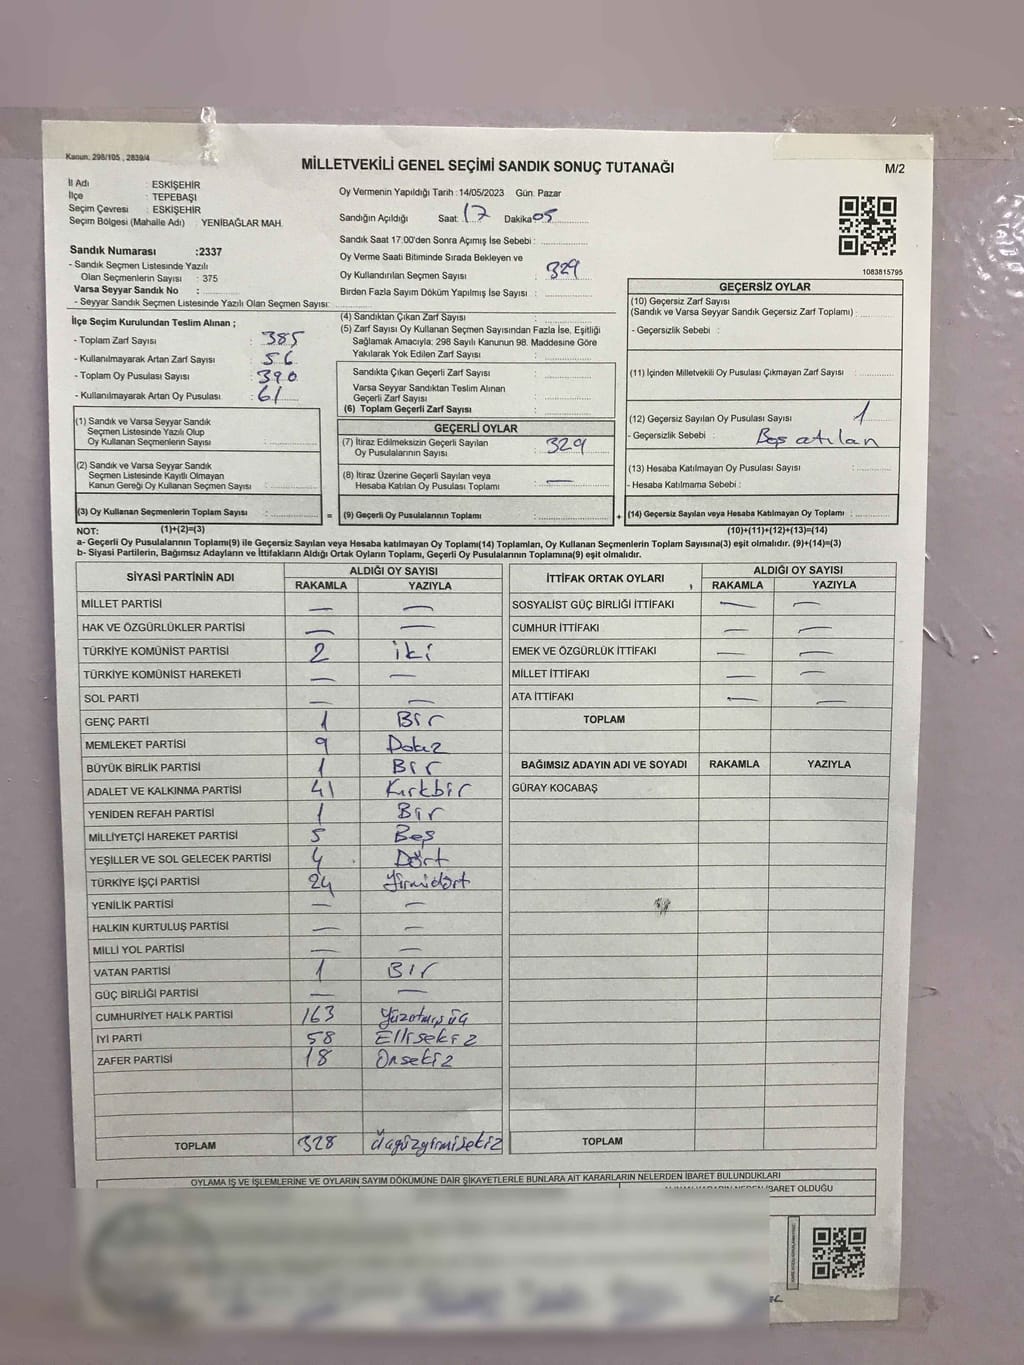 Kanun: 298/105 , 2839/4
MİLLETVEKİLİ GENEL SEÇİMİ SANDIK SONUÇ TUTANAĞI
M/2
İl Adı : ESKİŞEHİR
İlçe : TEPEBAŞI
Seçim Çevresi : ESKİŞEHİR
Seçim Bölgesi (Mahalle Adı) : YENİBAĞLAR MAH.
Sandık Numarası :2337
- Sandık Seçmen Listesinde Yazılı
Olan Seçmenlerin Sayısı : 375
Varsa Seyyar Sandık No :
- Seyyar Sandık Seçmen Listesinde Yazılı Olan Seçmen Sayısı:
Oy Vermenin Yapıldığı Tarih : 14/05/2023 Gün: Pazar
Sandığın Açıldığı Saat: 17 Dakika 05
Sandık Saat 17:00'den Sonra Açımış İse Sebebi :
Oy Verme Saati Bitiminde Sırada Bekleyen ve
Oy Kullandırılan Seçmen Sayısı : 329
Birden Fazla Sayım Döküm Yapılmış İse Sayısı :
1083815795
İlçe Seçim Kurulundan Teslim Alınan ;
- Toplam Zarf Sayısı : 385
- Kullanılmayarak Artan Zarf Sayısı : 56
- Toplam Oy Pusulası Sayısı : 390
- Kullanılmayarak Artan Oy Pusulası : 61
(1) Sandık ve Varsa Seyyar Sandık
Seçmen Listesinde Yazılı Olup
Oy Kullanan Seçmenlerin Sayısı :
(2) Sandık ve Varsa Seyyar Sandık
Seçmen Listesinde Kayıtlı Olmayan
Kanun Gereği Oy Kullanan Seçmen Sayısı :
(3) Oy Kullanan Seçmenlerin Toplam Sayısı :
(4) Sandıktan Çıkan Zarf Sayısı :
(5) Zarf Sayısı Oy Kullanan Seçmen Sayısından Fazla İse, Eşitliği
Sağlamak Amacıyla; 298 Sayılı Kanunun 98. Maddesine Göre
Yakılarak Yok Edilen Zarf Sayısı :
Sandıkta Çıkan Geçerli Zarf Sayısı :
Varsa Seyyar Sandıktan Teslim Alınan
Geçerli Zarf Sayısı :
(6) Toplam Geçerli Zarf Sayısı :
GEÇERLİ OYLAR
(7) İtiraz Edilmeksizin Geçerli Sayılan
Oy Pusulalarının Sayısı : 329
(8) İtiraz Üzerine Geçerli Sayılan veya
Hesaba Katılan Oy Pusulası Toplamı : —
= (9) Geçerli Oy Pusulalarının Toplamı :
GEÇERSİZ OYLAR
(10) Geçersiz Zarf Sayısı
(Sandık ve Varsa Seyyar Sandık Geçersiz Zarf Toplamı) :
- Geçersizlik Sebebi :
(11) İçinden Milletvekili Oy Pusulası Çıkmayan Zarf Sayısı :
(12) Geçersiz Sayılan Oy Pusulası Sayısı : 1
- Geçersizlik Sebebi : Boş atılan
(13) Hesaba Katılmayan Oy Pusulası Sayısı :
- Hesaba Katılmama Sebebi :
+ (14) Geçersiz Sayılan veya Hesaba Katılmayan Oy Toplamı :
NOT: (1)+(2)=(3) (10)+(11)+(12)+(13)=(14)
a- Geçerli Oy Pusulalarının Toplamı(9) ile Geçersiz Sayılan veya Hesaba Katılmayan Oy Toplamı(14) Toplamları, Oy Kullanan Seçmenlerin Toplam Sayısına(3) eşit olmalıdır. (9)+(14)=(3)
b- Siyasi Partilerin, Bağımsız Adayların ve İttifakların Aldığı Ortak Oyların Toplamı, Geçerli Oy Pusulalarının Toplamına(9) eşit olmalıdır.
SİYASİ PARTİNİN ADI ALDIĞI OY SAYISI
RAKAMLA YAZIYLA
MİLLET PARTİSİ — —
HAK VE ÖZGÜRLÜKLER PARTİSİ — —
TÜRKİYE KOMÜNİST PARTİSİ 2 iki
TÜRKİYE KOMÜNİST HAREKETİ — —
SOL PARTİ — —
GENÇ PARTİ 1 Bir
MEMLEKET PARTİSİ 9 Dokuz
BÜYÜK BİRLİK PARTİSİ 1 Bir
ADALET VE KALKINMA PARTİSİ 41 Kırkbir
YENİDEN REFAH PARTİSİ 1 Bir
MİLLİYETÇİ HAREKET PARTİSİ 5 Beş
YEŞİLLER VE SOL GELECEK PARTİSİ 4 Dört
TÜRKİYE İŞÇİ PARTİSİ 24 Yirmidört
YENİLİK PARTİSİ — —
HALKIN KURTULUŞ PARTİSİ — —
MİLLİ YOL PARTİSİ — —
VATAN PARTİSİ 1 Bir
GÜÇ BİRLİĞİ PARTİSİ — —
CUMHURİYET HALK PARTİSİ 163 Yüzatmışüç
İYİ PARTİ 58 Ellisekiz
ZAFER PARTİSİ 18 Onsekiz
TOPLAM 328 Üçyüzyirmisekiz
İTTİFAK ORTAK OYLARI ALDIĞI OY SAYISI
RAKAMLA YAZIYLA
SOSYALİST GÜÇ BİRLİĞİ İTTİFAKI — —
CUMHUR İTTİFAKI — —
EMEK VE ÖZGÜRLÜK İTTİFAKI — —
MİLLET İTTİFAKI — —
ATA İTTİFAKI — —
TOPLAM
BAĞIMSIZ ADAYIN ADI VE SOYADI RAKAMLA YAZIYLA
GÜRAY KOCABAŞ
TOPLAM
OYLAMA İŞ VE İŞLEMLERİNE VE OYLARIN SAYIM DÖKÜMÜNE DAİR ŞİKAYETLERLE BUNLARA AİT KARARLARIN NELERDEN İBARET BULUNDUKLARI
İBARET OLDUĞU